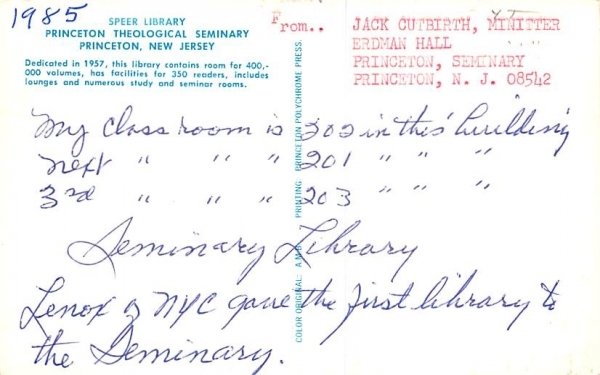 1985
SPEER LIBRARY
PRINCETON THEOLOGICAL SEMINARY
PRINCETON, NEW JERSEY
Dedicated in 1957, this library contains room for 400,-
000 volumes, has facilities for 350 readers, includes
lounges and numerous study and seminar rooms.
From..
JACK CUTBIRTH, MINITTER
ERDMAN HALL
PRINCETON, SEMINARY
PRINCETON, N. J. 08542
COLOR ORIGINAL: A.M.B. PRINTING PRINCETON POLYCHROME PRESS.
My class room is 302 in this building
next " " " 201 " " "
3rd " " " 203 " " "
Seminary Library
Lenox of NYC gave the first library to
the Seminary.